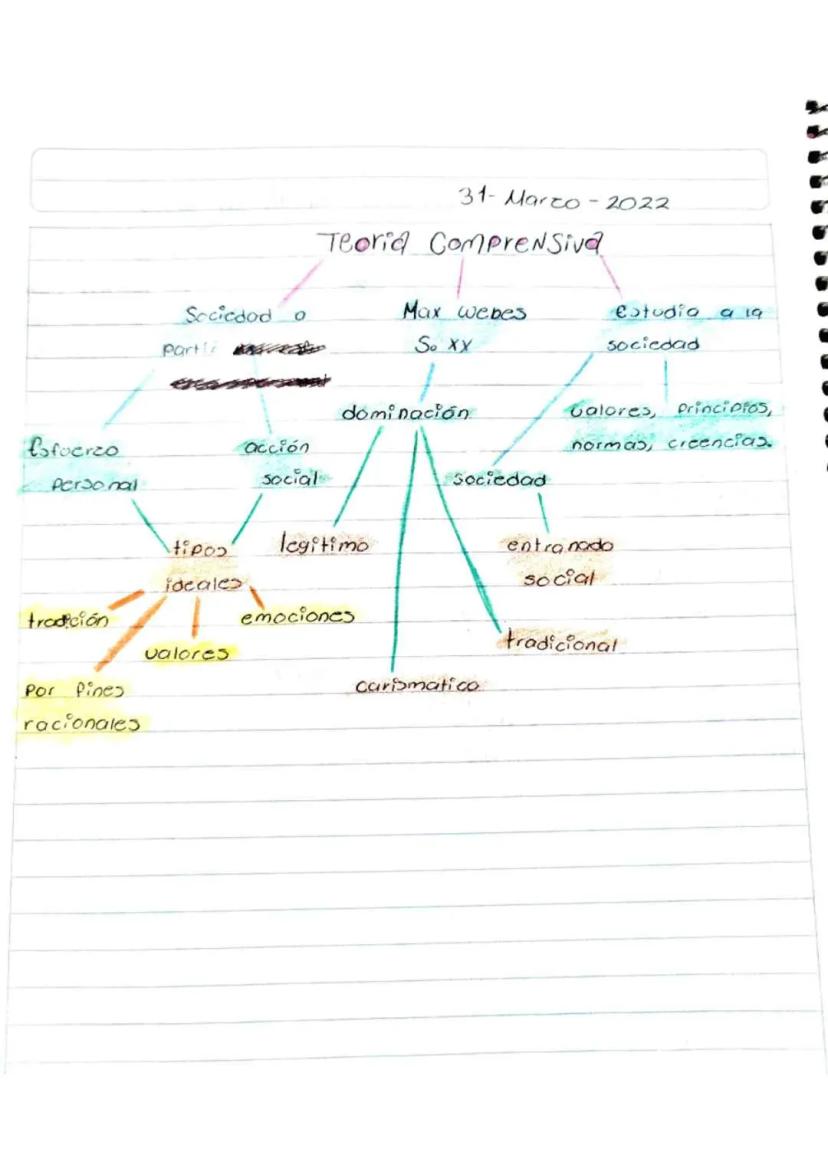 31- Marzo - 2022
Teoria Comprensiva
Sociedad a
partir
Max Webes
So XX
Estudia a la
sociedad
dominación
valores, principios,
normas, creencias.
Esfuerzo
personal
acción
social
sociedad
tipos
ideales
legitimo
entranado
social
tradición
emociones
valores
tradicional
Por fines
racionales
carismatico